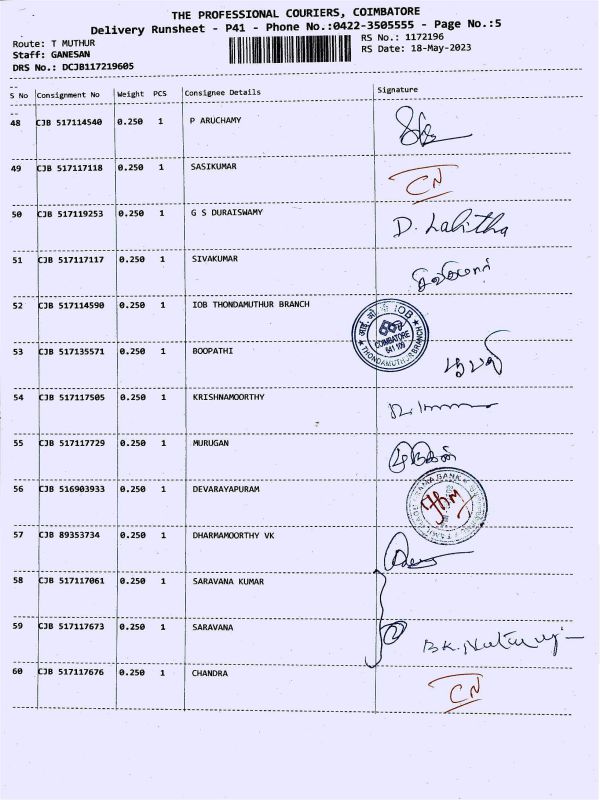 THE PROFESSIONAL COURIERS, COIMBATORE
Delivery Runsheet - P41 - Phone No.:0422-3505555 - Page No.:5
Route: T MUTHUR
RS No.: 1172196
Staff: GANESAN
RS Date: 18-May-2023
DRS No.: DCJB117219605
S No Consignment No Weight PCS Consignee Details Signature
48 CJB 517114540 0.250 1 P ARUCHAMY
49 CJB 517117118 0.250 1 SASIKUMAR CN
50 CJB 517119253 0.250 1 G S DURAISWAMY D. Lalitha
51 CJB 517117117 0.250 1 SIVAKUMAR
52 CJB 517114590 0.250 1 IOB THONDAMUTHUR BRANCH
IOB
COIMBATORE
641 109
THONDAMUTHUR BRANCH
53 CJB 517135571 0.250 1 BOOPATHI பூபதி
54 CJB 517117505 0.250 1 KRISHNAMOORTHY
55 CJB 517117729 0.250 1 MURUGAN முருகன்
56 CJB 516903933 0.250 1 DEVARAYAPURAM
57 CJB 89353734 0.250 1 DHARMAMOORTHY VK
58 CJB 517117061 0.250 1 SARAVANA KUMAR
59 CJB 517117673 0.250 1 SARAVANA
60 CJB 517117676 0.250 1 CHANDRA CN